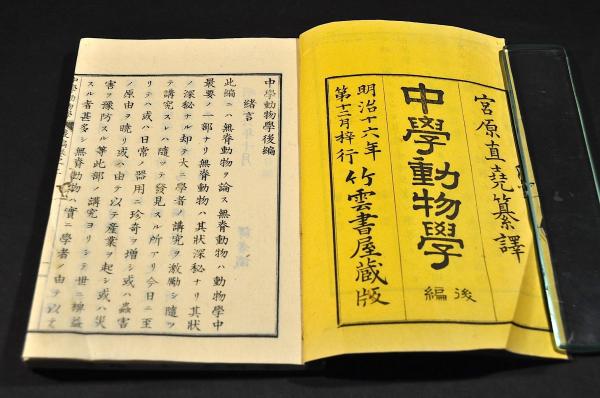 宮原直堯纂譯
中學動物學
後編
明治十六年
第十二月梓行
竹雲書屋蔵版
中學動物學後編
緒言
此編ニハ無脊動物ヲ論ス無脊動物ハ動物學中
最要ノ一部ナリ無脊動物ハ其狀深秘ナリ其狀
ノ深秘ナル却テ大ニ學者ノ講究ヲ激勵シ隨ツ
テ講究スレハ隨ツテ發見スル所アリ今日ニ至
リテハ或ハ日常ノ器用ニ珍奇ヲ増シ或ハ蟲害
ノ原由ヲ曉リ或ハ由テ以テ產業ヲ起シ或ハ災
害ヲ豫防スル等此部ノ講究ヨリシテ世ニ裨益
スル者甚多シ無脊動物ハ實ニ學者ノ由テ以テ